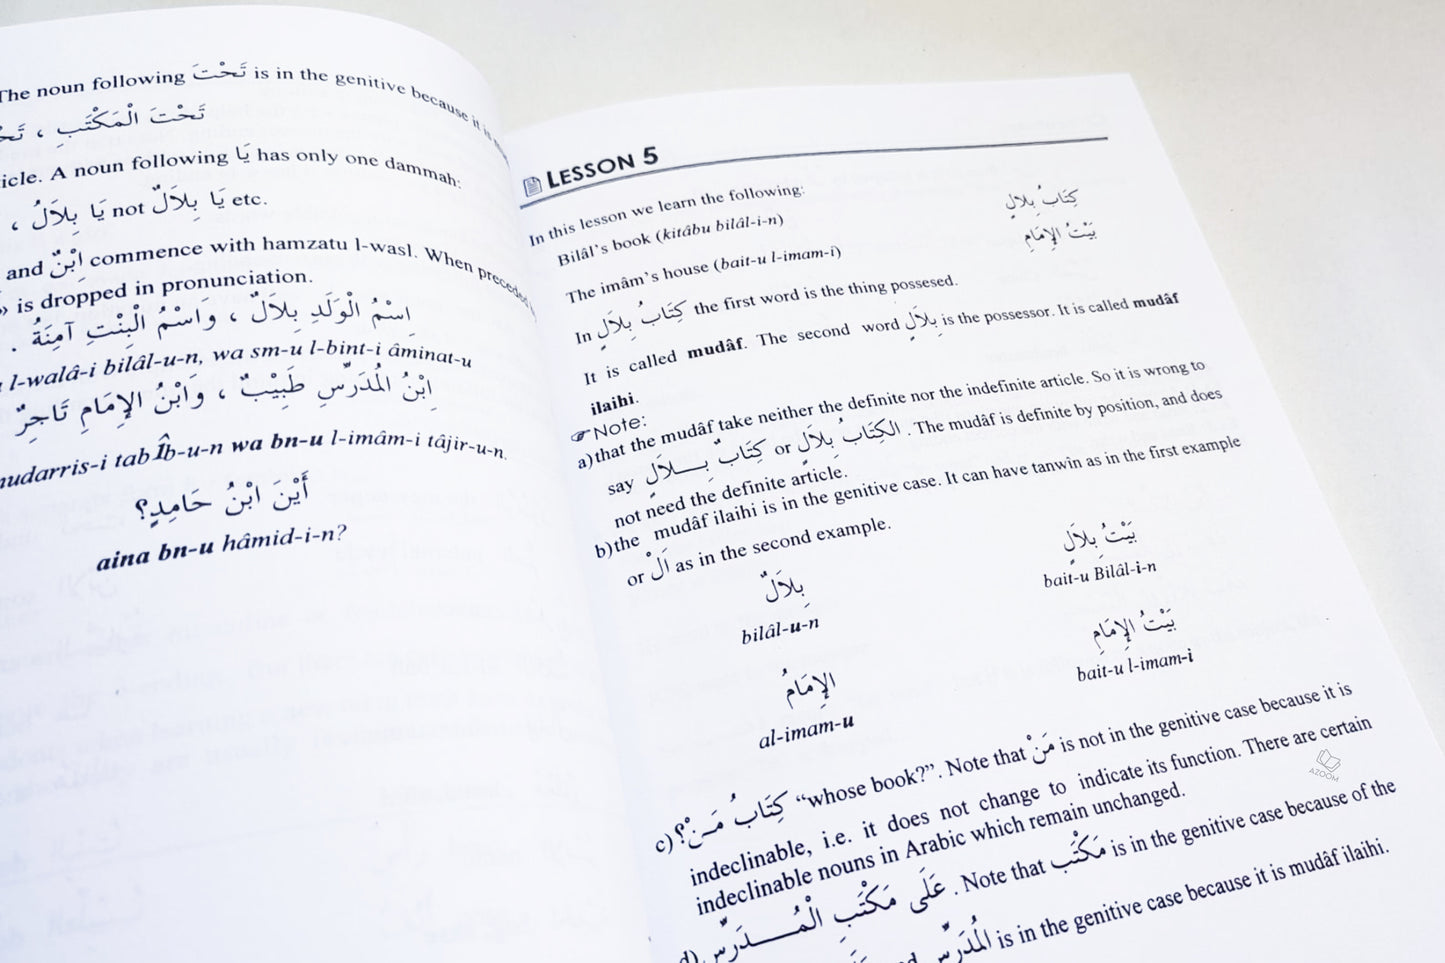 The noun following تَحْتَ is in the genitive because it is
تَحْتَ الْمَكْتَبِ ،
A noun following يَا has only one dammah:
، يَا بِلاَلُ not يَا بِلاَلٌ etc.
and اِبْنٌ commence with hamzatu l-wasl. When preceded
is dropped in pronunciation.
اِسْمُ الْوَلَدِ بِلاَلٌ ، وَاسْمُ الْبِنْتِ آمِنَةُ .
l-walâ-i bilâl-u-n, wa sm-u l-bint-i âminat-u
اِبْنُ الْمُدَرِّسِ طَبِيْبٌ ، وَابْنُ الإِمَامِ تَاجِرٌ
mudarris-i tabÎb-u-n wa bn-u l-imâm-i tâjir-u-n.
أَيْنَ ابْنُ حَامِدٍ؟
aina bn-u hâmid-i-n?
LESSON 5
In this lesson we learn the following:
Bilâl's book (kitâbu bilâl-i-n) كِتَابُ بِلاَلٍ
The imâm's house (bait-u l-imam-i) بَيْتُ الإِمَامِ
In كِتَابُ بِلاَلٍ the first word is the thing possesed.
It is called mudâf. The second word بِلاَلٍ is the possessor. It is called mudâf
ilaihi.
Note:
a)that the mudâf take neither the definite nor the indefinite article. So it is wrong to
say كِتَابٌ بِـــلاَلٍ or الكِتَابُ بِلاَلٍ . The mudâf is definite by position, and does
not need the definite article.
b)the mudâf ilaihi is in the genitive case. It can have tanwîn as in the first example
or اَلْ as in the second example.
بِلاَلٌ بَيْتُ بِلاَلٍ
bilâl-u-n bait-u Bilâl-i-n
الإِمَامُ بَيْتُ الإِمَامِ
al-imam-u bait-u l-imam-i
c) كِتَابُ مَـنْ؟ “whose book?”. Note that مَنْ is not in the genitive case because it is
indeclinable, i.e. it does not change to indicate its function. There are certain
indeclinable nouns in Arabic which remain unchanged.
d) عَلَى مَكْتَبِ الْمُـــدَرِّسِ . Note that مَكْتَبِ is in the genitive case because of the
الْمُدَرِّسِ is in the genitive case because it is mudâf ilaihi.
AZOOM